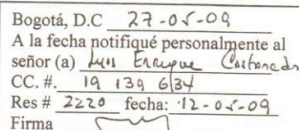 Bogotá, D.C 27-05-09
A la fecha notifiqué personalmente al
señor (a) Luis Enrique Castaneda
CC. #. 19 139 634
Res # 2220 fecha: 12-05-09
Firma